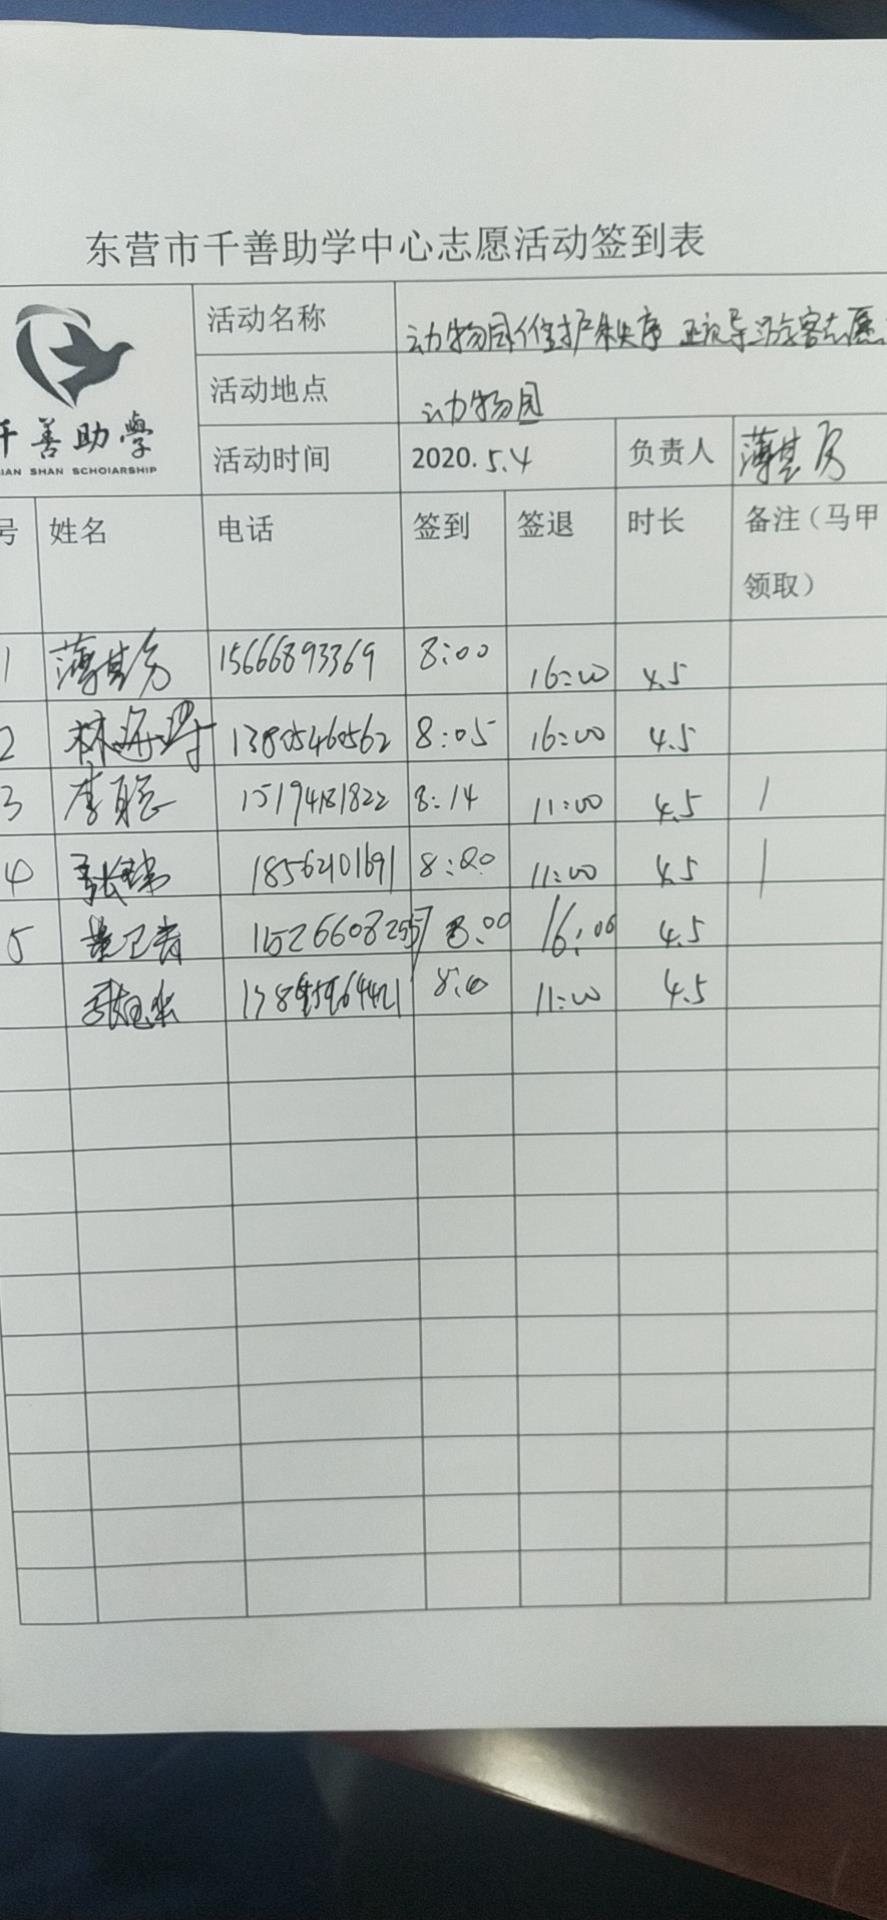 东营市千善助学中心志愿活动签到表
千善助學
IAN SHAN SCHOIARSHIP
活动名称 动物园维护秩序 正视导游客志愿
活动地点 动物园
活动时间 2020.5.4 负责人
号 姓名 电话 签到 签退 时长 备注（马甲
领取）
1 15666893369 8:00 16:00 4.5
2 林海 13805460562 8:05 16:00 4.5
3 李 15194181822 8:14 11:00 4.5 1
4 张 18562101691 8:20 11:00 4.5 1
5 卫 8:00 16:00 4.5
张 11:00 4.5